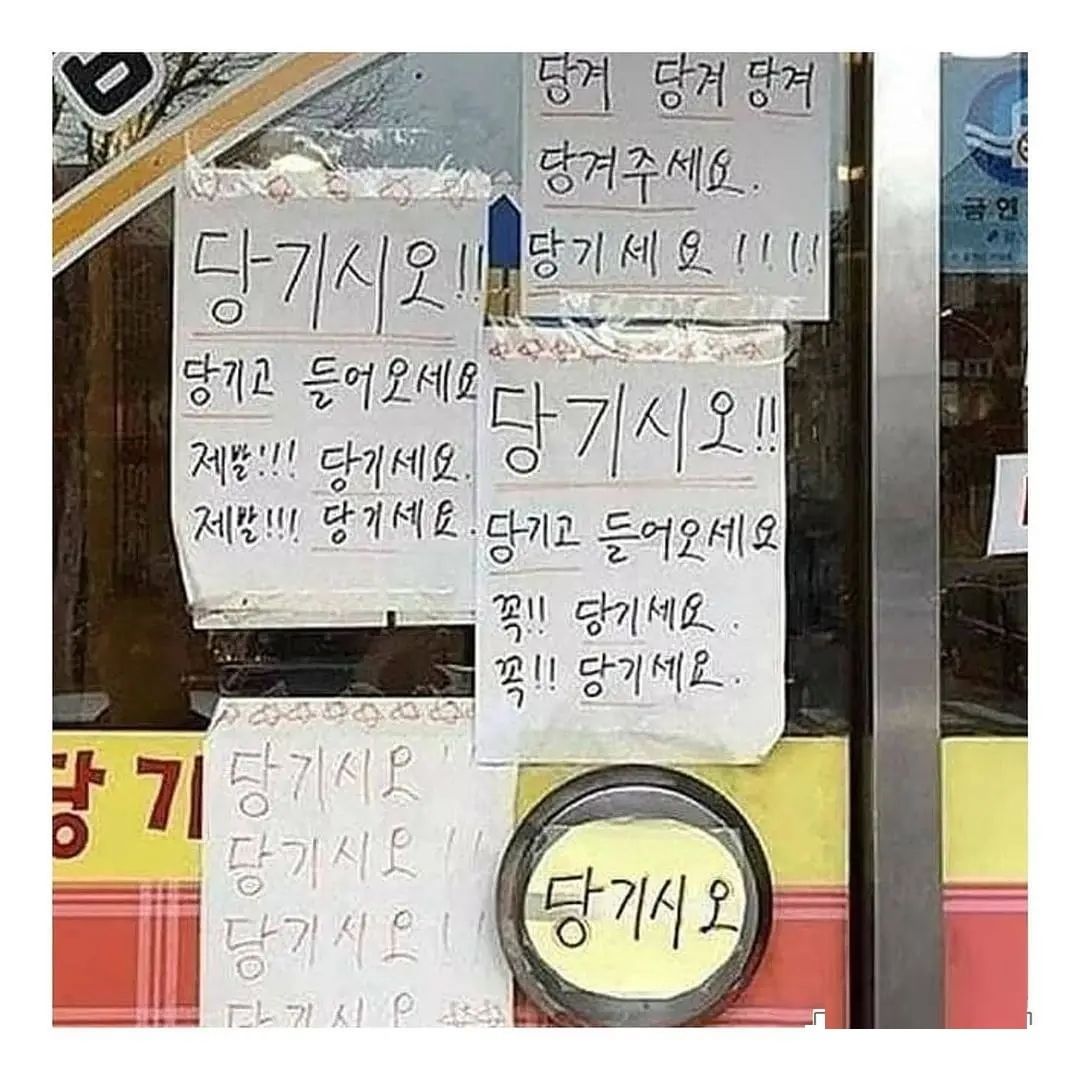 당겨 당겨 당겨
당겨주세요.
당기세요!!!!
당기시오!!
당기고 들어오세요
제발!!! 당기세요.
제발!!! 당기세요.
당기시오!!
당기고 들어오세요
꼭!! 당기세요.
꼭!! 당기세요.
당기시오!!
당기시오!!
당기시오!!
당기시오
당기시오
당기
금연